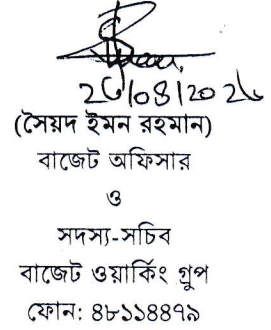 (সৈয়দ ইমন রহমান)
বাজেট অফিসার
ও
সদস্য-সচিব
বাজেট ওয়ার্কিং গ্রুপ
ফোন: ৪৮১১৪৪৭৯